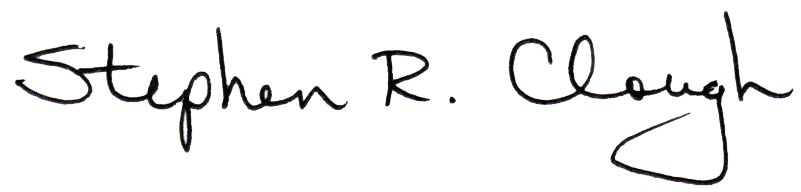 Stephen R. Clough